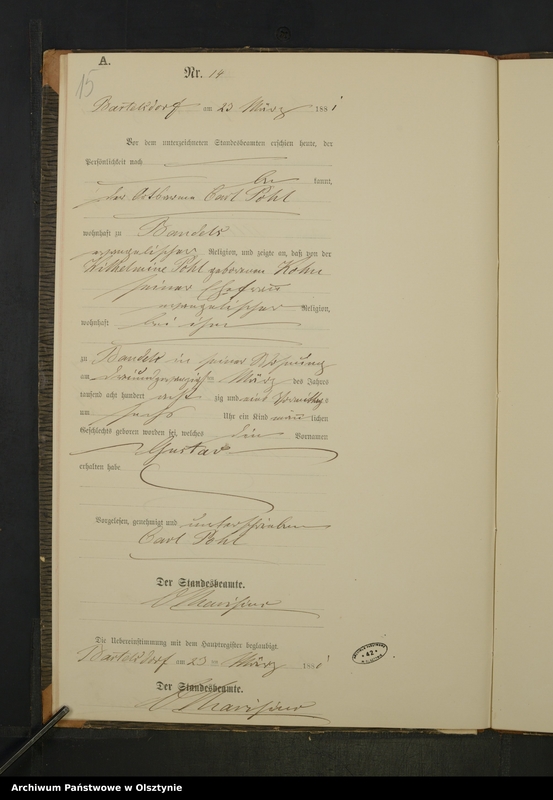 A.
15
Nr. 14
Bartelsdorf am 23 März 1881
Vor dem unterzeichneten Standesbeamten erschien heute, der
Persönlichkeit nach
be kannt,
der
Carl Pohl
wohnhaft zu Bandels
evangelischer Religion, und zeigte an, daß von der
Wilhelmine Pohl geborenen Kohn
seiner Ehefrau
evangelischer Religion,
wohnhaft bei ihm
zu Bandels in seiner Wohnung
am dreiundzwanzigsten März des Jahres
tausend acht hundert acht zig und eins Vormittags
um sechs Uhr ein Kind männ lichen
Geschlechts geboren worden sei, welches den Vornamen
Gustav
erhalten habe
Vorgelesen, genehmigt und unterschrieben
Carl Pohl
Der Standesbeamte.
Die Uebereinstimmung mit dem Hauptregister beglaubigt.
Bartelsdorf am 23 ten März 1881
Der Standesbeamte.
* 42 *
Archiwum Państwowe w Olsztynie